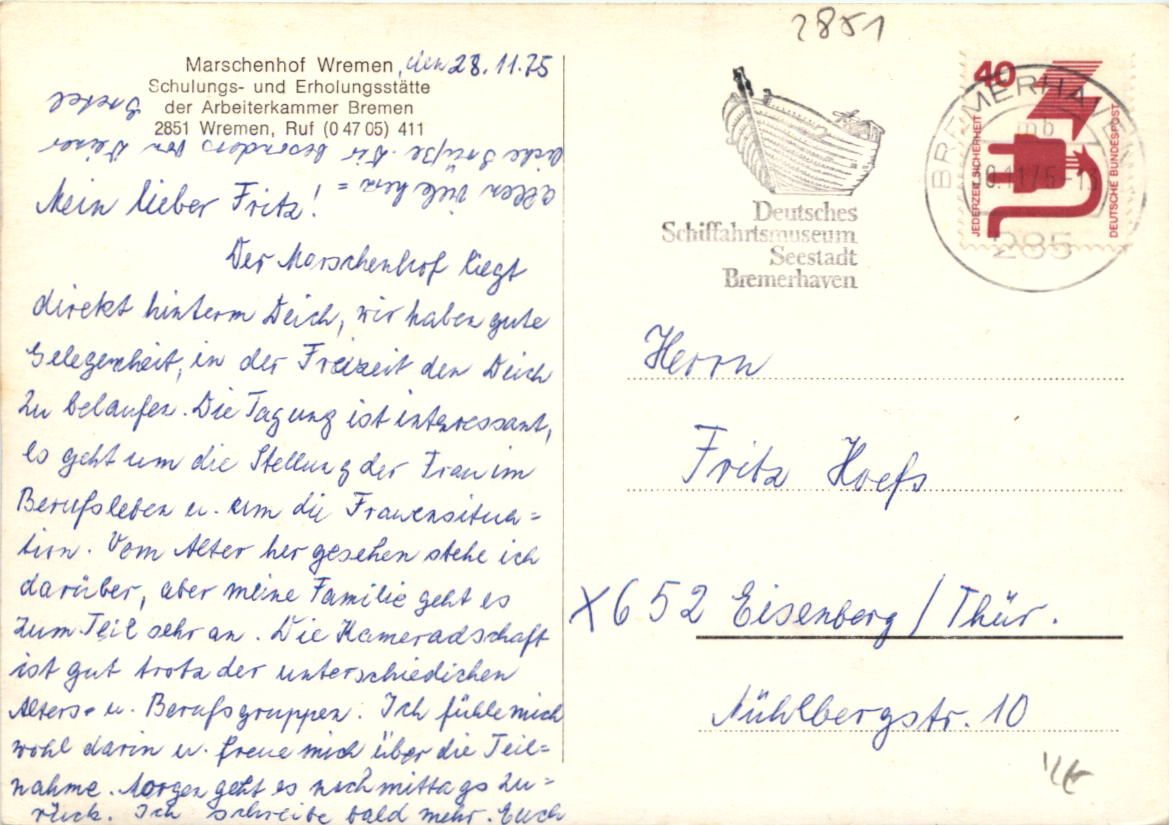 2851
Marschenhof Wremen, den 28.11.75
Schulungs- und Erholungsstätte
der Arbeiterkammer Bremen
2851 Wremen, Ruf (0 47 05) 411
Mein lieber Fritz!
Der Marschenhof liegt
direkt hinterm Deich, wir haben gute
Gelegenheit, in der Freizeit den Deich
zu belaufen. Die Tagung ist interessant,
es geht um die Stellung der Frau im
Berufsleben u. um die Frauensitua=
tion. Vom Alter her gesehen stehe ich
darüber, aber meine Familie geht es
zum Teil sehr an. Die Kameradschaft
ist gut trotz der unterschiedlichen
Alters- u. Berufsgruppen. Ich fühle mich
wohl darin u. freue mich über die Teil=
nahme. Morgen geht es nachmittags zu=
rück. Ich schreibe bald mehr. Euch
allen viele herz=
liche Grüße. Dir besonders von Deiner
Gretel
Deutsches
Schiffahrtsmuseum
Seestadt
Bremerhaven
BREMERHAVEN
mb
285
40
JEDERZEIT SICHERHEIT
DEUTSCHE BUNDESPOST
Herrn
Fritz Hoefs
X 652 Eisenberg / Thür.
Mühlbergstr. 10